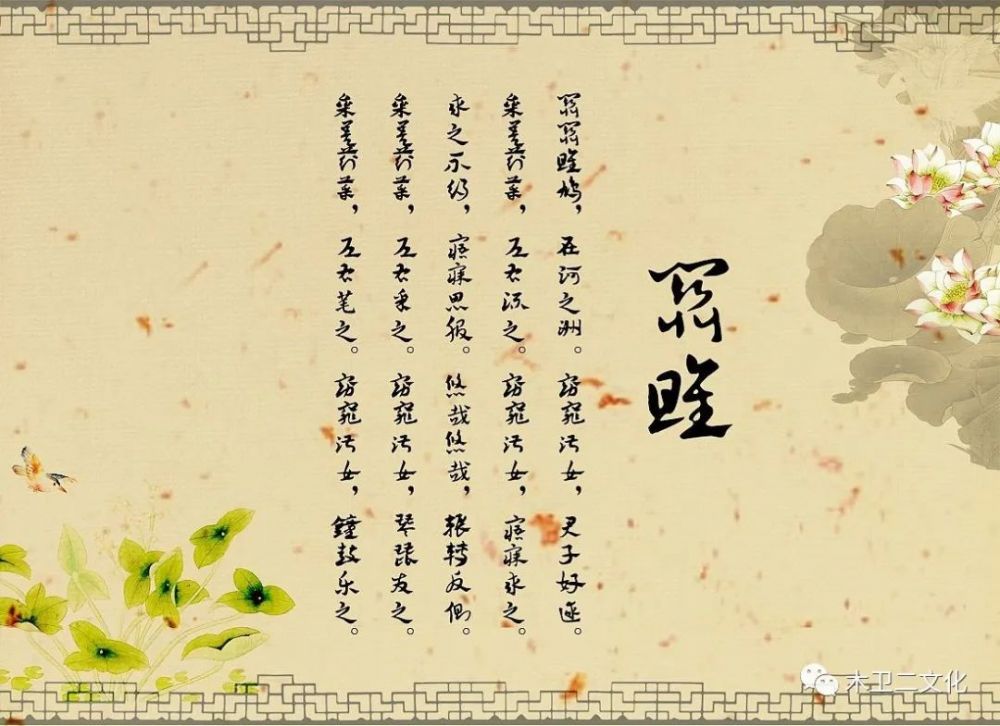 關雎
關關雎鳩，在河之洲。窈窕淑女，君子好逑。
參差荇菜，左右流之。窈窕淑女，寤寐求之。
求之不得，寤寐思服。悠哉悠哉，輾轉反側。
參差荇菜，左右采之。窈窕淑女，琴瑟友之。
參差荇菜，左右芼之。窈窕淑女，鐘鼓乐之。
木卫二文化